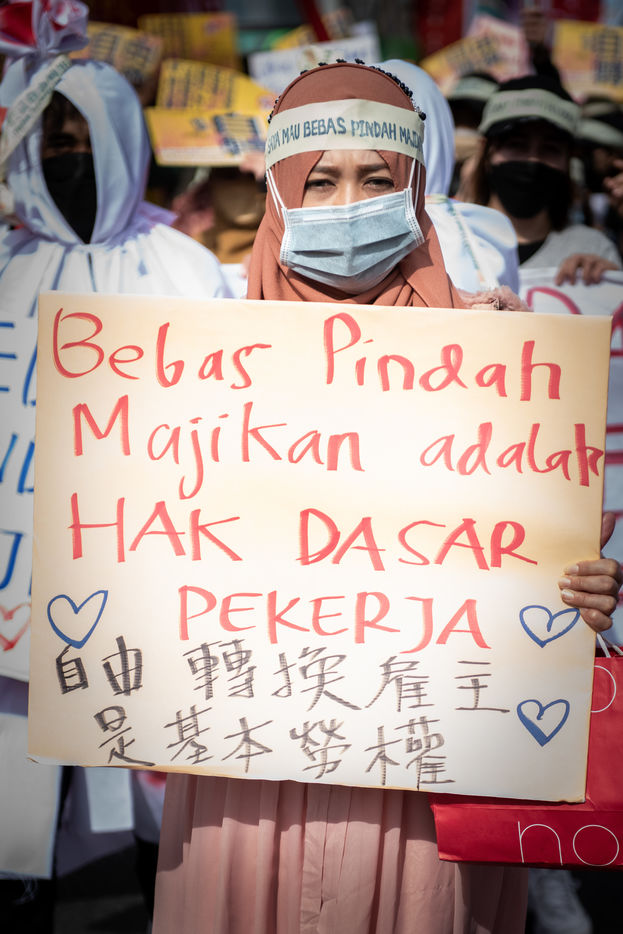 SAYA MAU BEBAS PINDAH MAJIKAN
Bebas Pindah
Majikan adalah
HAK DASAR
PEKERJA
自由轉換雇主
是基本勞權
no